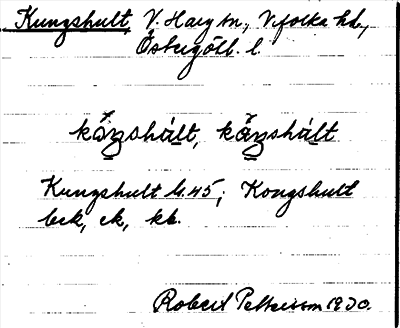 Kungshult, V. Harg sn., Vifolka hd.,
Östergötl. l.
kåŋshált, käŋshált
Kungshult b. 45; Kongshult
bek, ek, kb.
Robert Pettersson 1930.